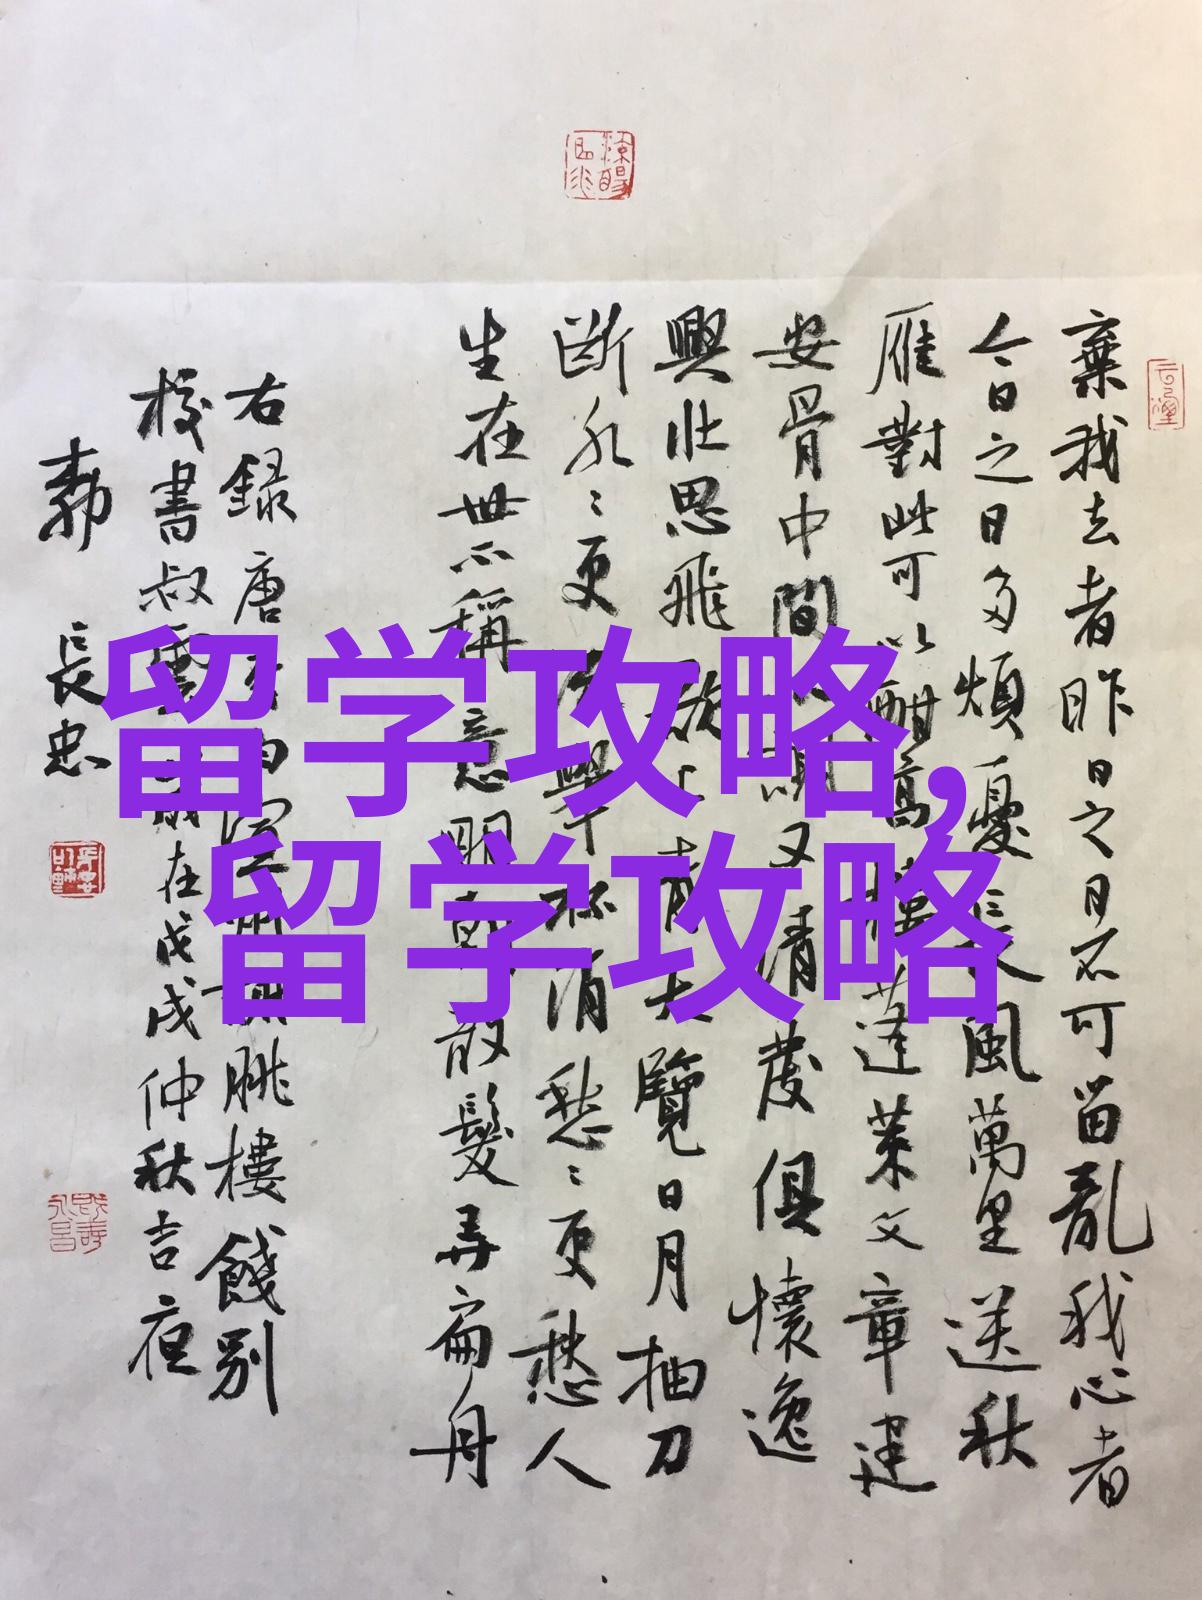 留学攻略,
留学攻略
棄我去者昨日之日不可留亂我心者
今日之日多煩憂長風萬里送秋
雁對此可以酣高樓蓬萊文章建
安骨中間小謝又清發俱懷逸
興壯思飛欲上青天覽日月抽刀
斷水々更流舉杯消愁々更愁人
生在世不稱意明朝散髮弄扁舟
右録唐李白宣州謝朓樓餞別
校書叔雲在戊戌仲秋吉夜
長忠